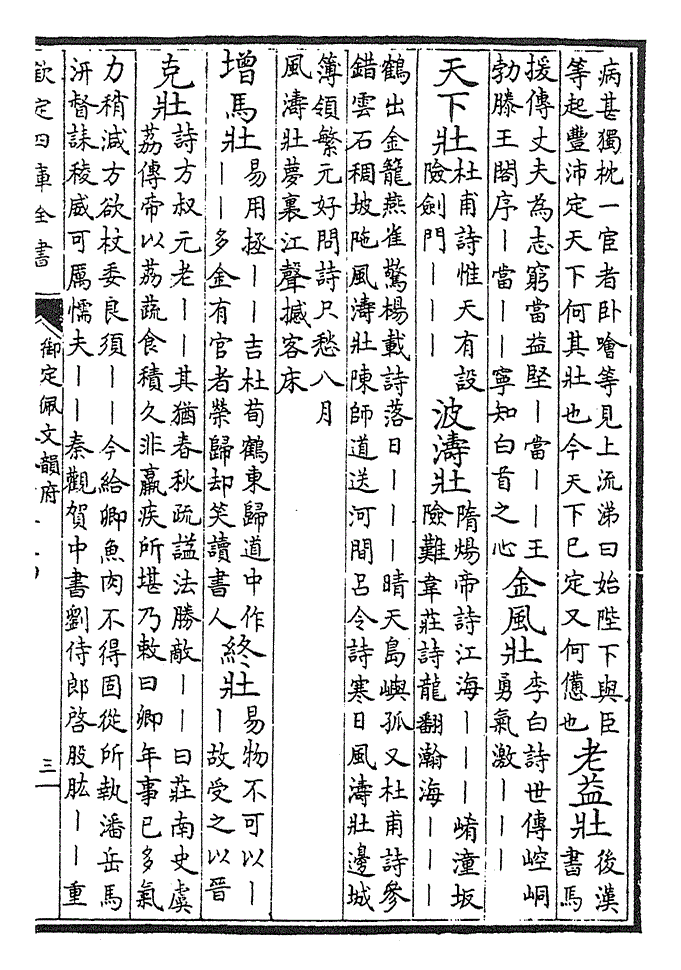 病甚獨枕一宦者卧噲等見上流涕曰始陛下與臣
等起豐沛定天下何其壯也今天下已定又何憊也
老益壯
後漢
書馬
援傳丈夫為志窮當益堅丨當丨丨王
勃滕王閣序丨當丨丨寧知白首之心
金風壯
李白詩世傳崆峒
勇氣激丨丨丨
天下壯
杜甫詩惟天有設
險劍門丨丨丨
波濤壯
隋煬帝詩江海丨丨丨崤潼坂
險難韋莊詩龍翻瀚海丨丨丨
鶴出金籠燕雀驚楊載詩落日丨丨丨晴天島嶼孤又杜甫詩參
錯雲石稠坡陁風濤壯陳師道送河間呂令詩寒日風濤壯邊城
簿領繁元好問詩只愁八月
風濤壯夢裏江聲撼客床
增馬壯
易用拯丨丨吉杜荀鶴東歸道中作
丨丨多金有官者榮歸却笑讀書人
終壯
易物不可以丨
丨故受之以晉
克壯
詩方叔元老丨丨其猶春秋疏謚法勝敵丨丨曰莊南史虞
荔傳帝以荔蔬食積久非羸疾所堪乃敕曰卿年事已多氣
力稍減方欲杖委良須丨丨今給卿魚肉不得固從所執潘岳馬
汧督誄稜威可厲懦夫丨丨秦觀賀中書劉侍郎啓股肱丨丨重
欽定四庫全書
御定佩文韻府
三